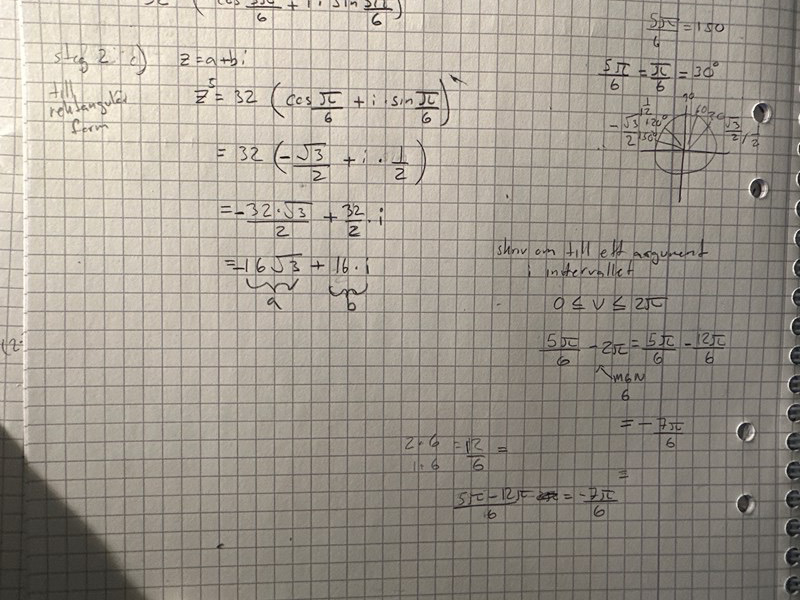 (cos 5π/6 + i · sin 5π/6)
steg 2 i c) z = a+bi
till rektangulär form
z⁵ = 32 (cos π/6 + i · sin π/6)
= 32 (-√3/2 + i · 1/2)
= -32·√3/2 + 32/2 · i
= -16√3 + 16 · i
a b
5π/6 = 150
5π/6 = π/6 = 30°
90
-√3/2 120° 150°
√3/2, 1/2
skriv om till ett argument
i intervallet
0 ≤ v ≤ 2π
5π/6 - 2π = 5π/6 - 12π/6
MGN
6
= -7π/6
2·6/1·6 = 12/6 =
=
5π-12π/6 = -7π/6